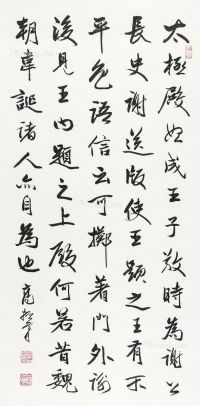 太極殿始成王子敬時為謝公
長史謝送版使王題之王有不
平色語信云可擲著門外謝
後見王曰題之上殿何若昔魏
朝韋誕諸人亦自為也